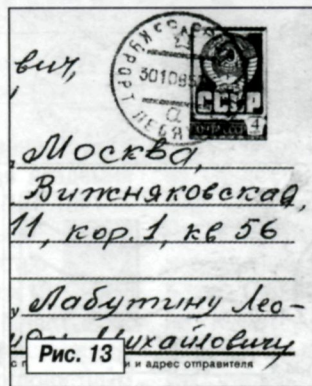 вич,
КУРОРТ ЛЕБЯ
301085
а
СССР
4
Москва,
Вижняковская,
11, кор. 1, кв 56
Лабутину Лео-
Михайловичу
Рис. 13
и адрес отправителя